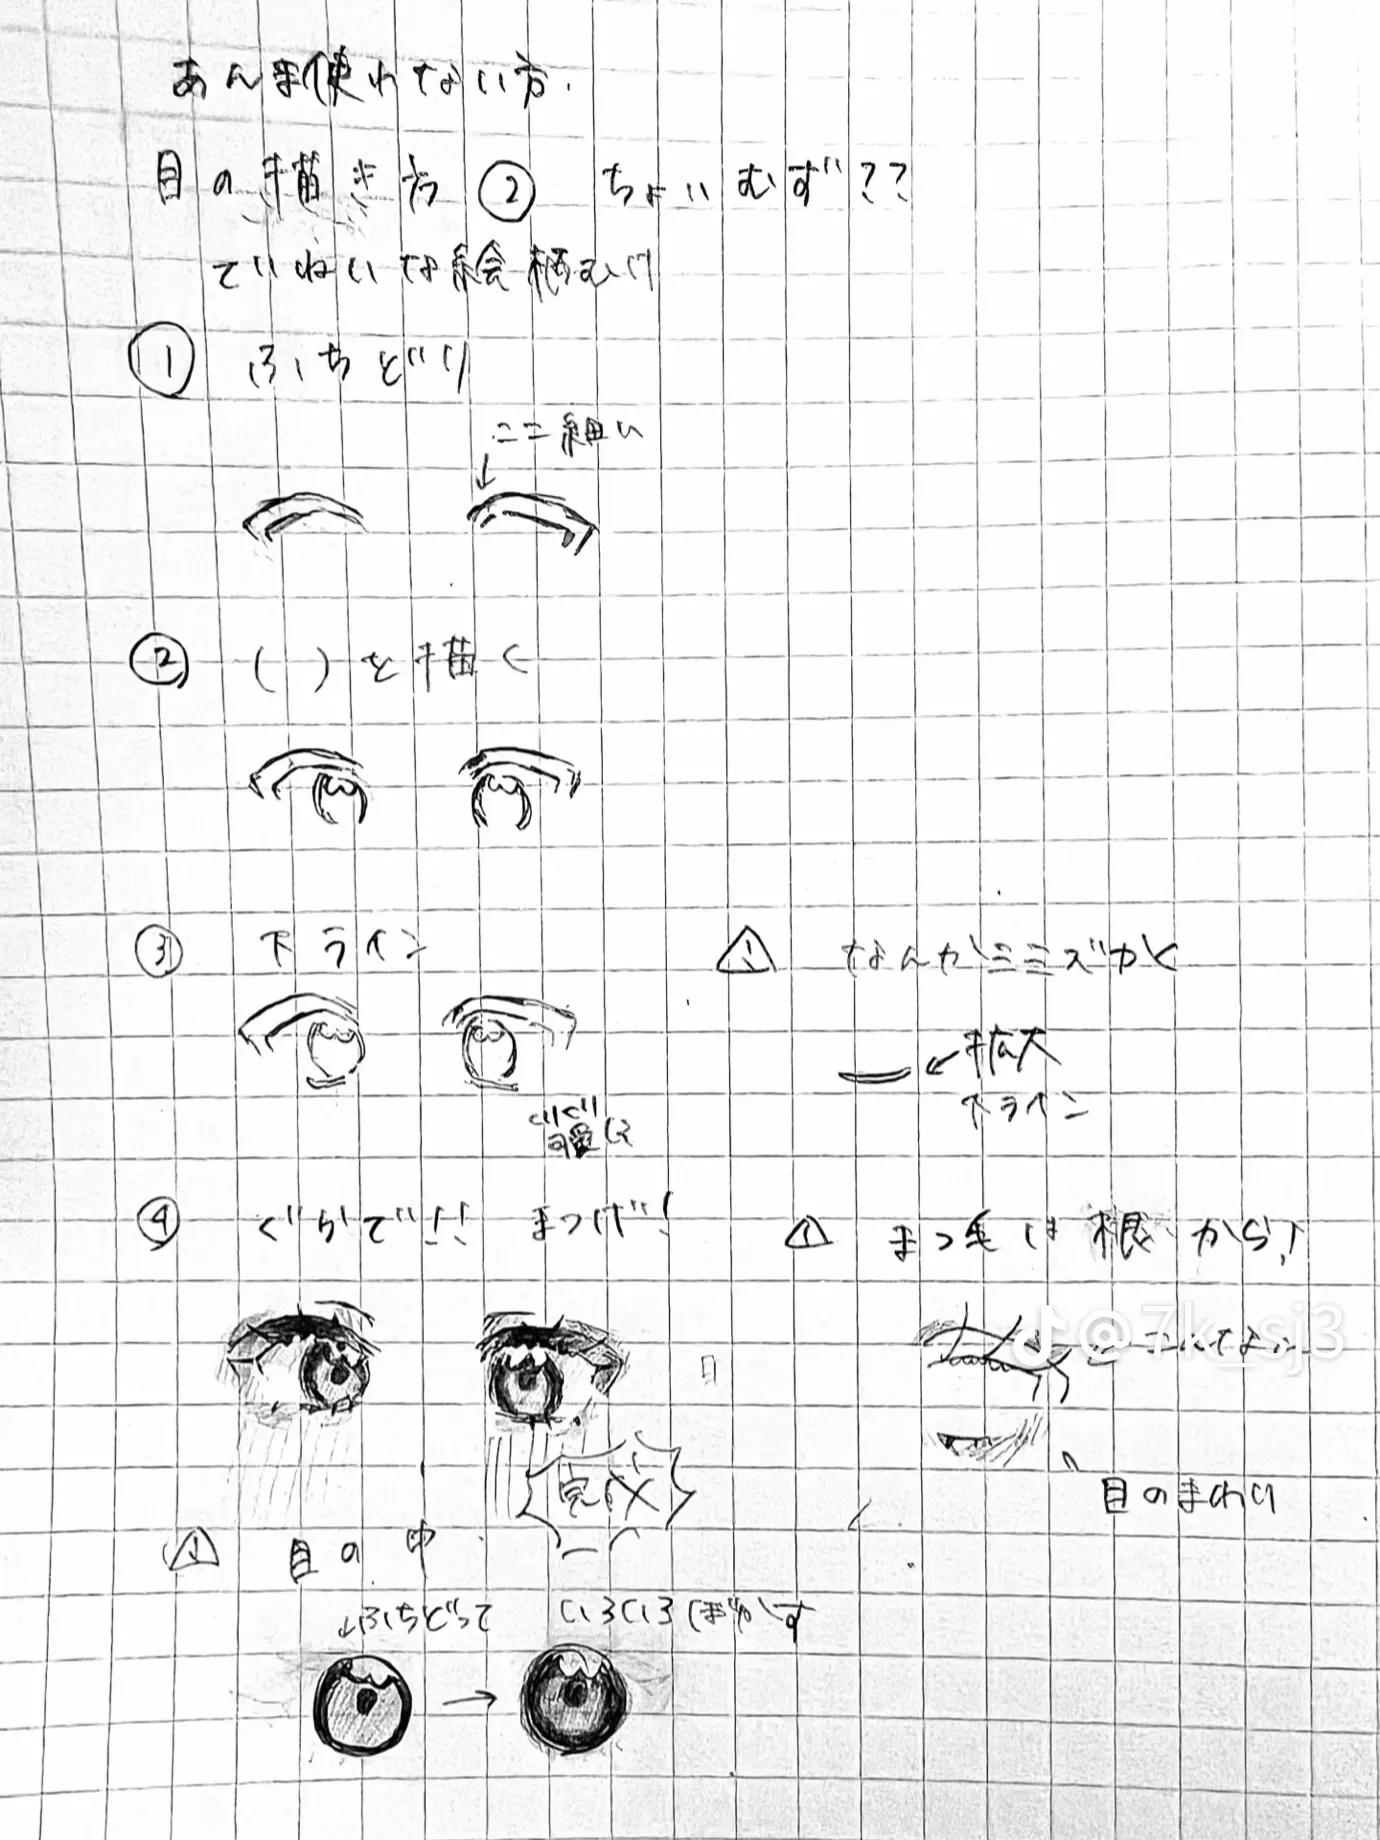 あんま使れない方.
目の描き方② ちょいむず??
ていねいな絵柄むけ
① ふちどり
ここ細い
② ( )を描く
③ 下ライン
⚠ なんかミミズかく
←拡大
下ライン
ぐりぐり
可愛く
④ ぐらで!! まつげ!
⚠ まつ毛は根っから!
@7k_sj3
こんなふ
完成
目のまわり
⚠ 目の中
↓ふちどって
いろいろぼかす
→